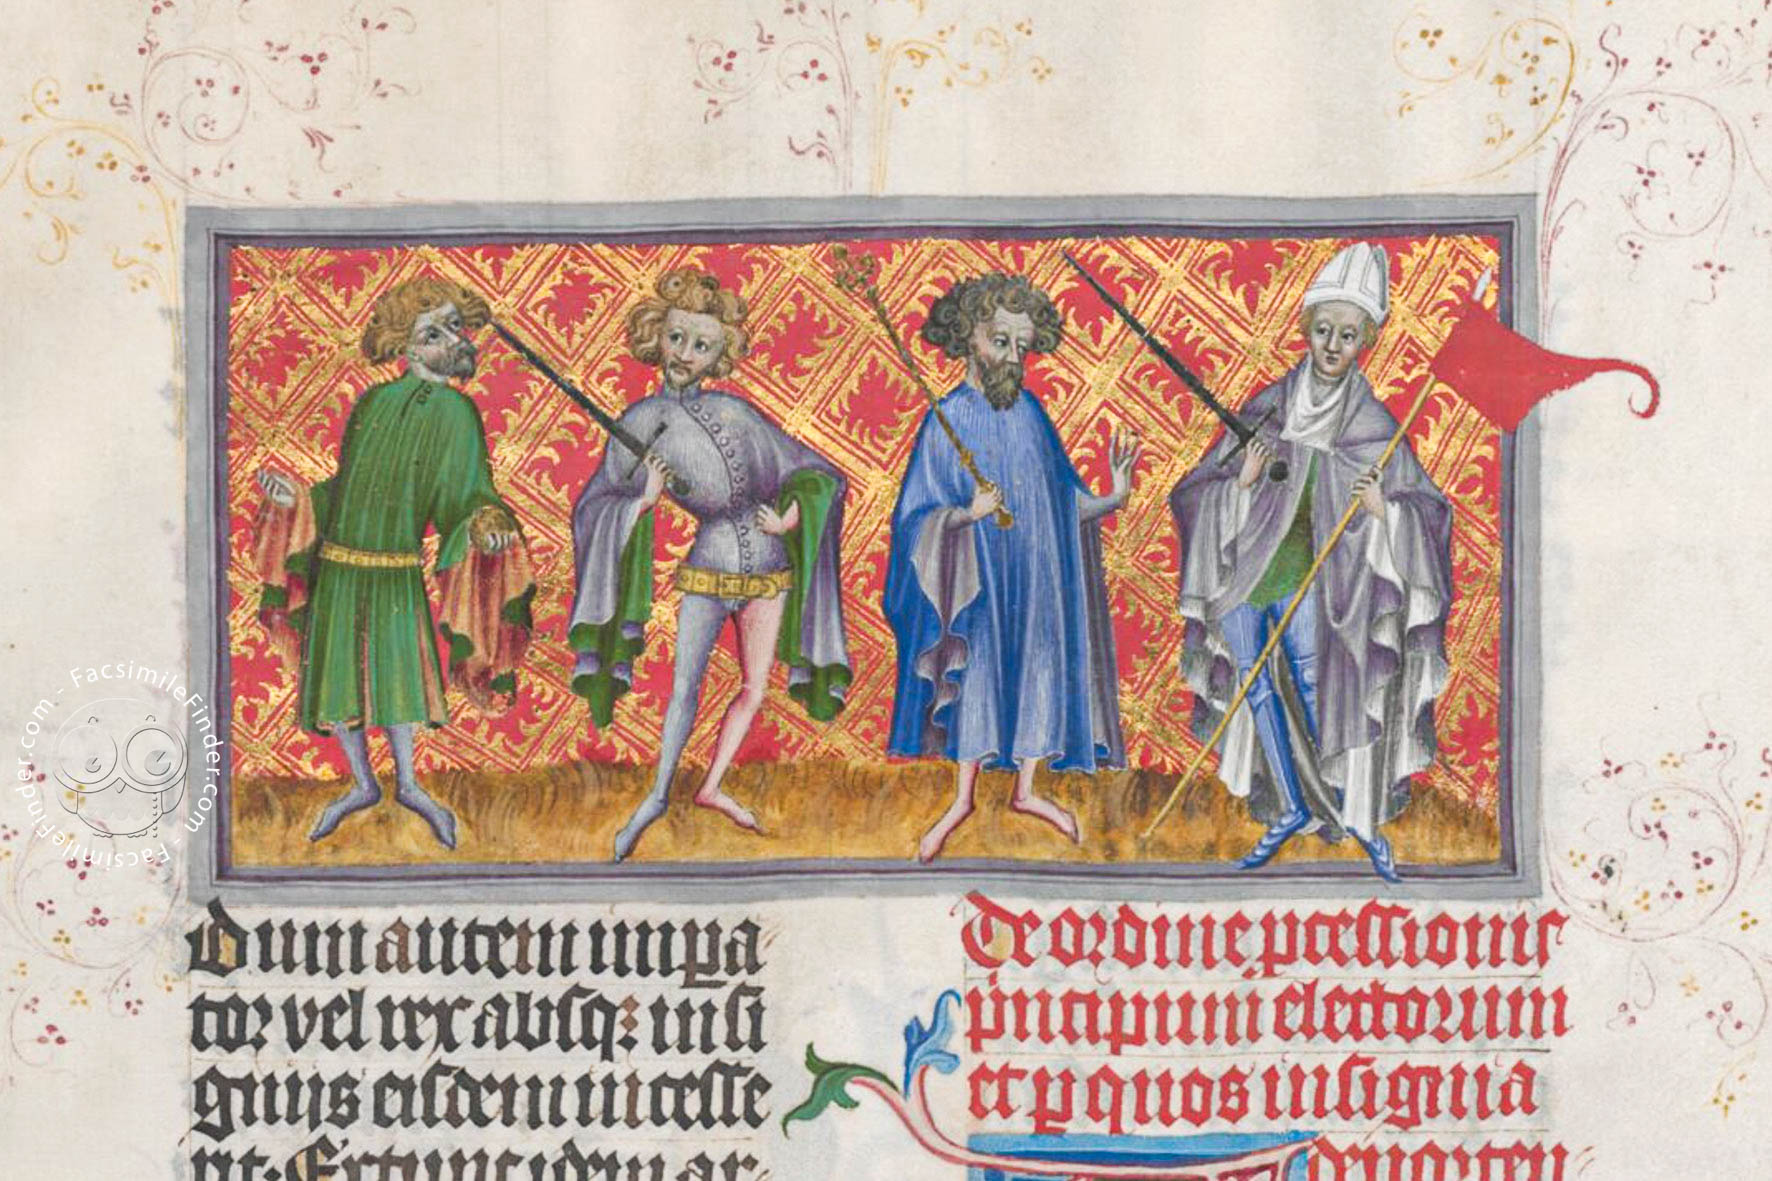 Dum autem impa
tor vel rex absq; insi
gniis eisdem incesse
rit. Extunc idem ar
De ordine pcessionis
principum electorum
et p quos insignia
FacsimileFinder.com - FacsimileFinder.com - Facsimile